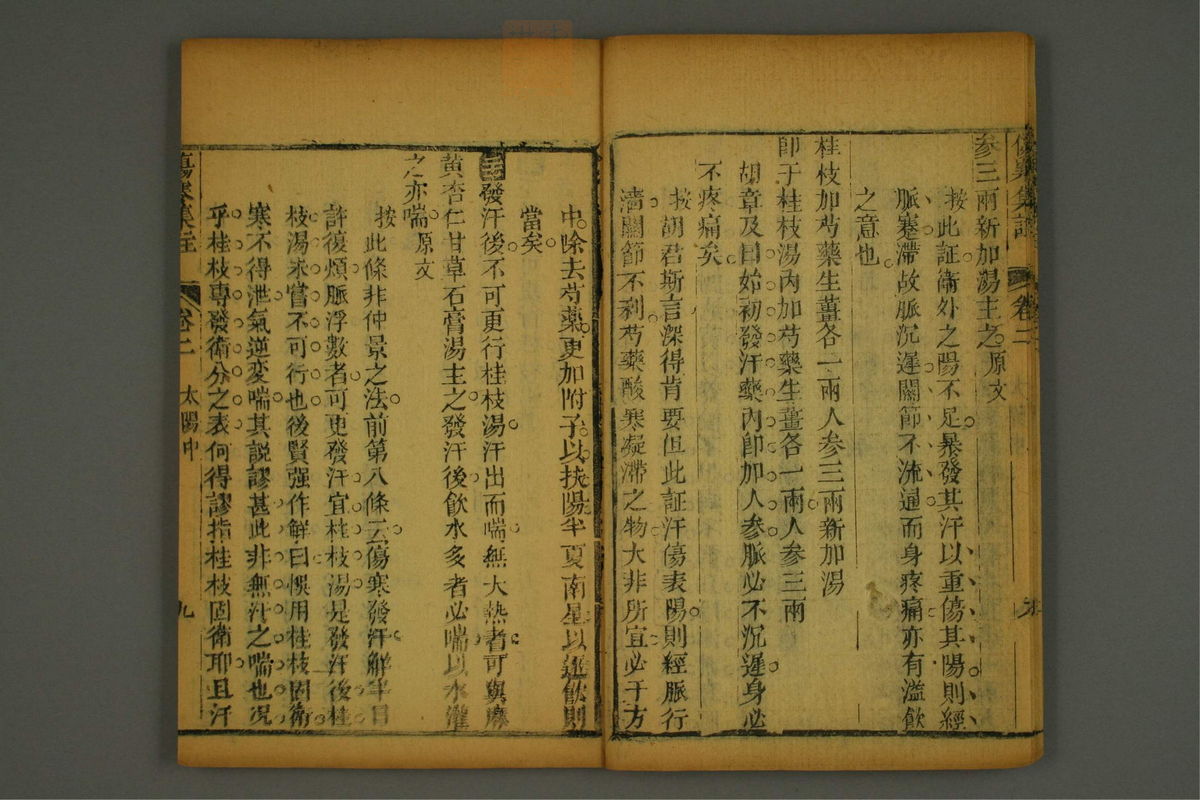 傷寒集註 卷二
參三兩新加湯主之原文
按此証衛外之陽不足暴發其汗以重傷其陽則經
脈塞滯故脈沉遲關節不流通而身疼痛亦有溢飲
之意也
桂枝加芍藥生薑各一兩人參三兩新加湯
卽于桂枝湯內加芍藥生薑各一兩人參三兩
胡章及曰始初發汗藥內卽加人參脈必不沉遲身必
不疼痛矣
按胡君斯言深得肯要但此証汗傷表陽則經脈行
濇關節不利芍藥酸寒凝滯之物大非所宜必于方
中除去芍藥更加附子以扶陽半夏南星以逐飲則
當矣
發汗後不可更行桂枝湯汗出而喘無大熱者可與麻
黃杏仁甘草石膏湯主之發汗後飲水多者必喘以水灌
之亦喘原文
按此條非仲景之法前第八條云傷寒發汗解半日
許復煩脈浮數者可更發汗宜桂枝湯是發汗後桂
枝湯未嘗不可行也後賢强作解曰悞用桂枝固衛
寒不得泄氣逆変喘其説謬甚此非無汗之喘也况
乎桂枝專發衛分之表何得謬指桂枝固衛耶且汗
傷寒集註 卷二 太陽中 九